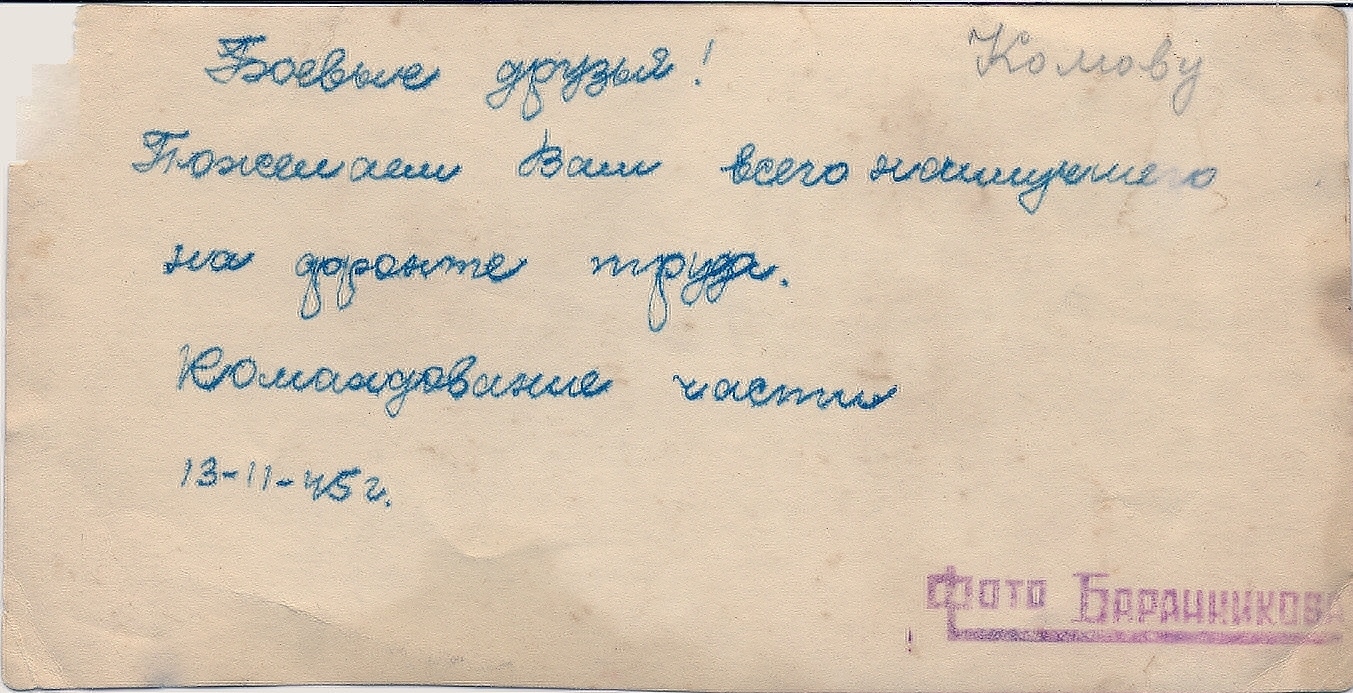 Боевые друзья! Комову
Пожелаем Вам всего наилучшего
на фронте труда.
Командование части
13-11-45г.
Фото Баранникова